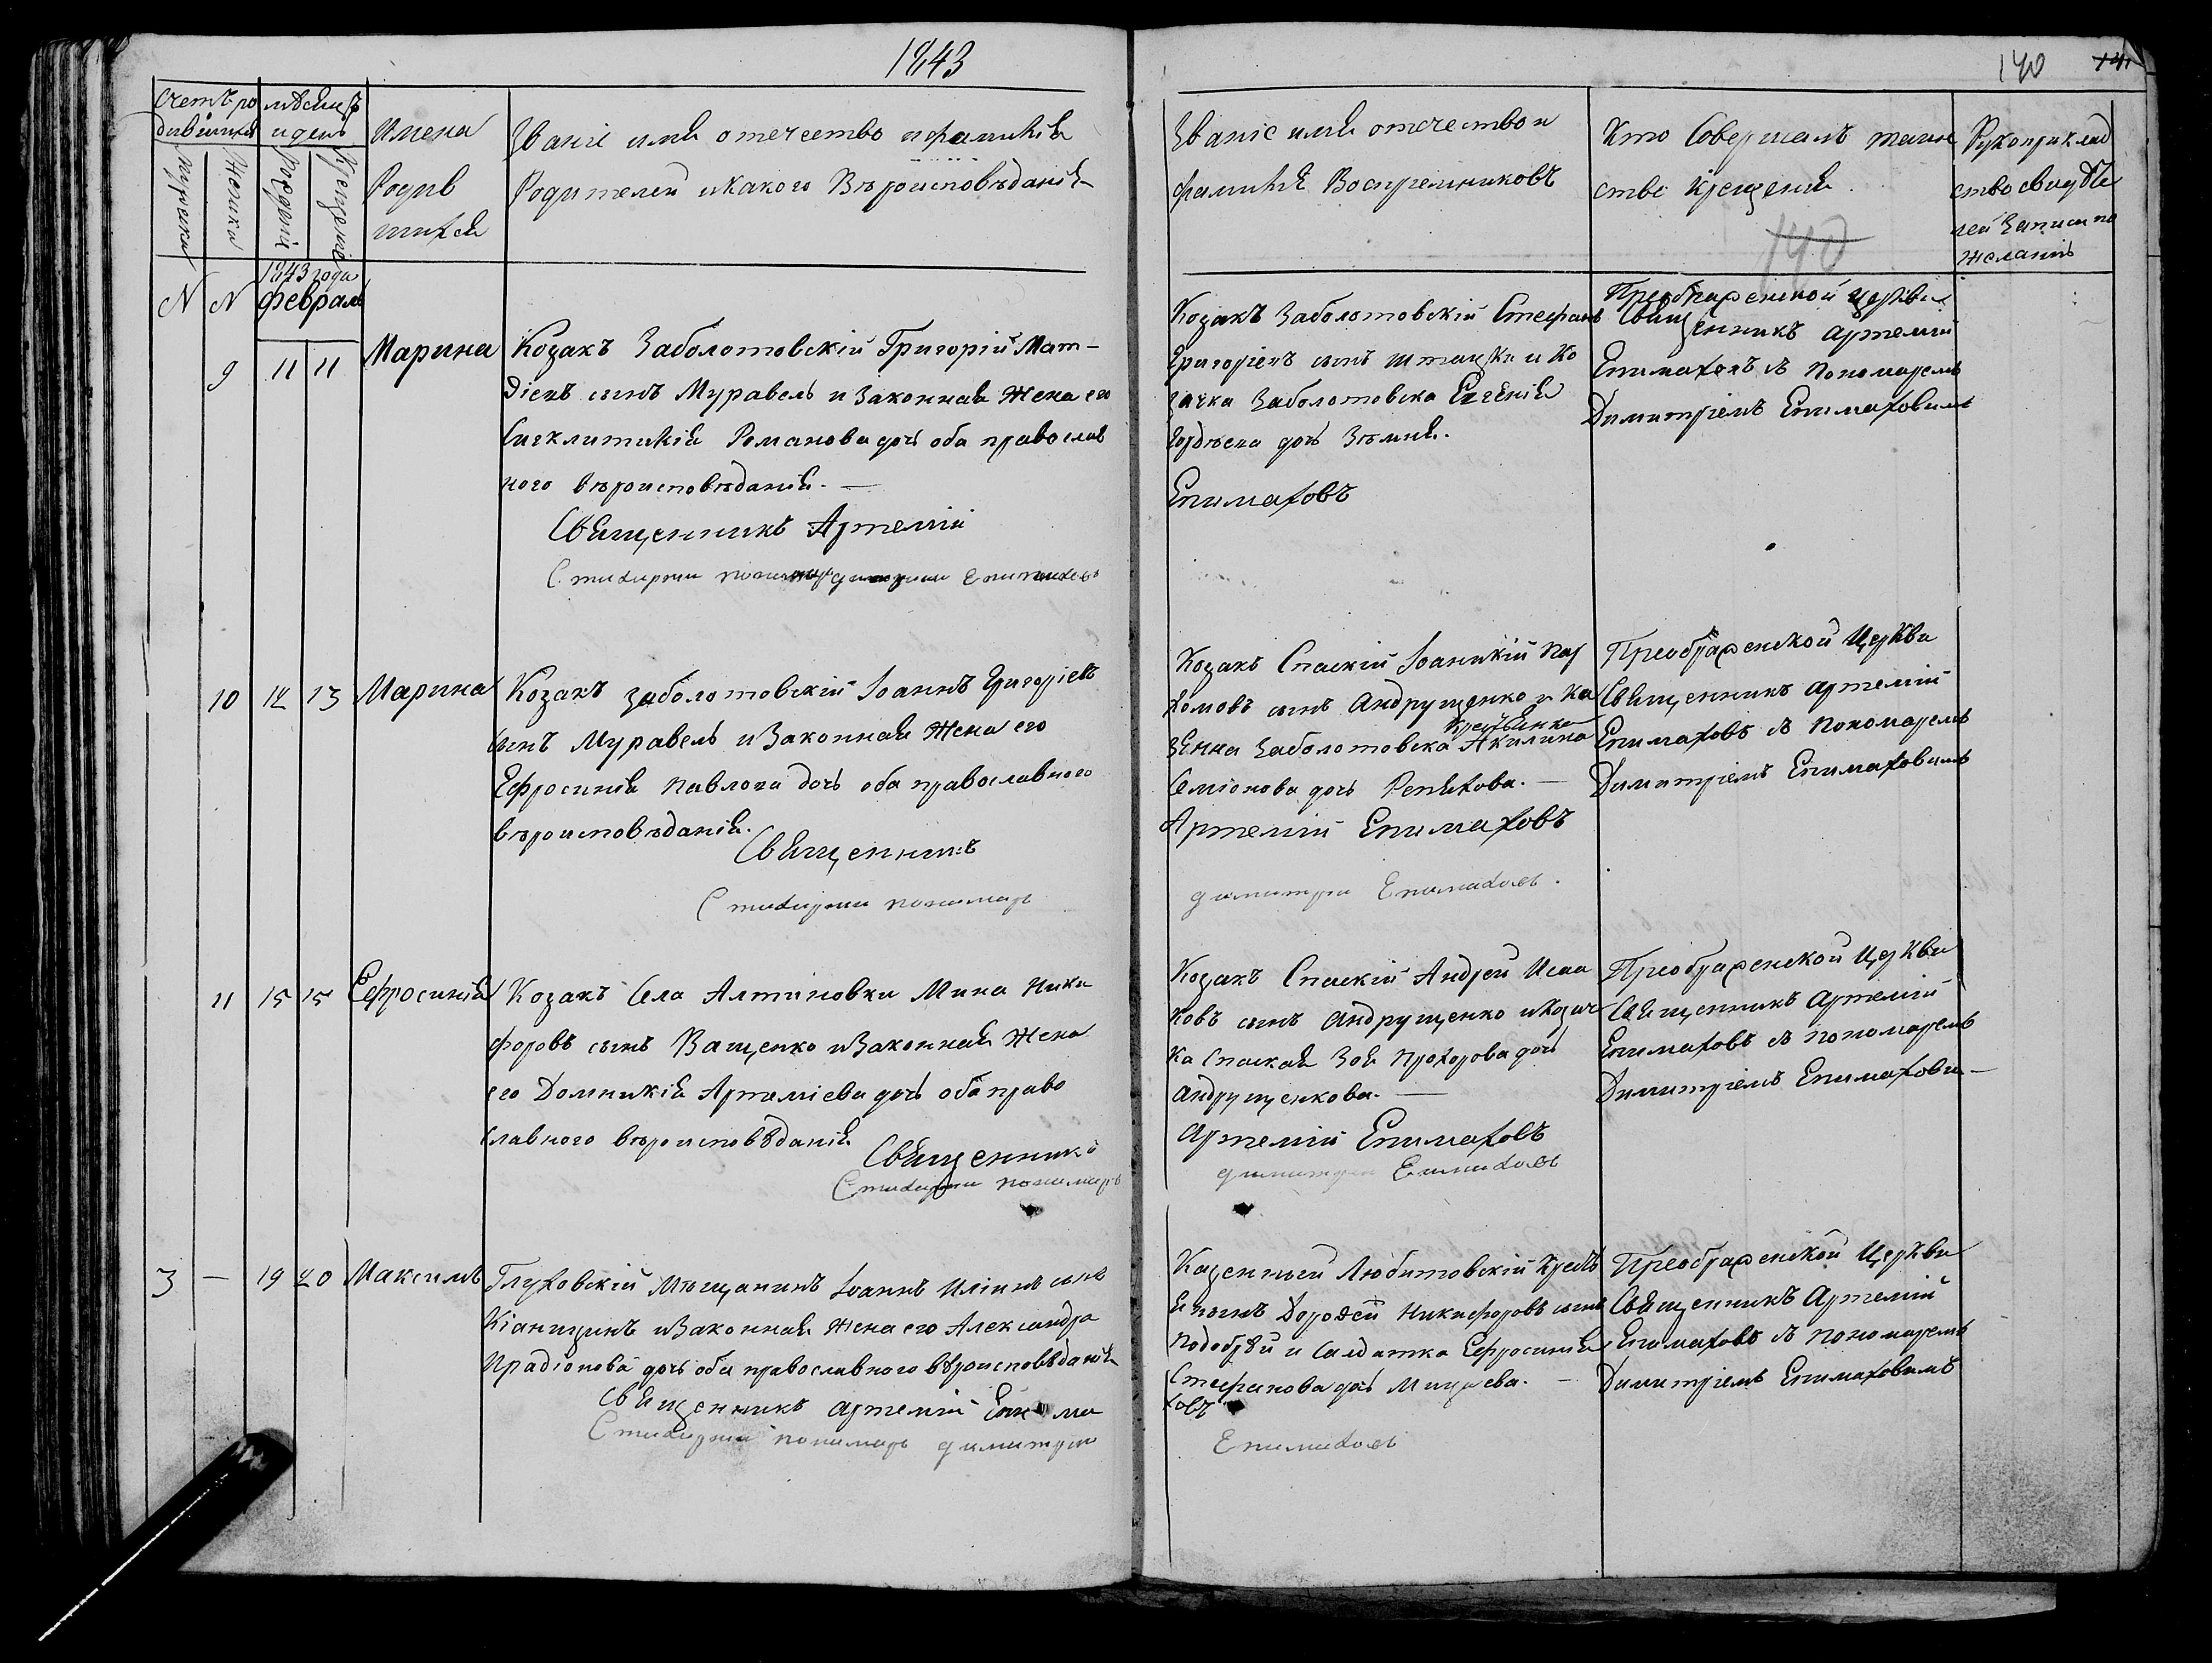 1843
140
Счетъ ро
дившихся
мѣсяцъ
и день
Имена
Родив
шихся
Званіе имя отечество и фамилія
Родителей и какого Вѣроисповѣданія
Мужеска
Женска
Рожденія
Крещенія
Званіе имя отечество и
фамилія Воспріемниковъ
Кто Совершалъ таин
ство Крещенія
Рукоприклад
ство свидѣте
лей Записи по
желанію
140
N N 1843 года
февраль
9 11 11 Марина Козакъ Заболотовскій Григорій Мат-
ѳіевъ сынъ Муравель и Законная Жена его
Сигклитикія Романова дочь оба православ
ного вѣроисповѣданія. —
Священникъ Артемій
Стихарный пономарь димитрій Епимаховъ
Козакъ Заболотовскій Стефанъ
Григоріевъ сынъ и Ко
зачка Заболотовска Евгенія
дочь
Епимаховъ
Преображенской Церкви
Священникъ Артемій
Епимаховъ съ Пономаремъ
Димитріемъ Епимаховимъ
10 12 13 Марина Козакъ Заболотовскій Іоаннъ Григоріевъ
сынъ Муравель и Законная Жена его
Ефросинія Павлова дочь оба православного
вѣроисповѣданія.
Священникъ
Стихарный пономарь
Козакъ Спаскій Іоаникій Пар
ѳомовъ сынъ Андрущенко и Ка
крестьянка
зенна Заболотовска Акилина
Семіонова дочь Репяхова. —
Артемій Епимаховъ
димитрій Епимаховъ.
Преображенской Церкви
Священникъ Артемій
Епимаховъ съ Пономаремъ
Димитріемъ Епимаховимъ
11 15 15 Ефросинія Козакъ Села Алтиновки Мина Ники
форовъ сынъ Ващенко и Законная Жена
его Домникія Артеміева дочь оба право
славного вѣроисповѣданія
Священникъ
Стихарный пономарь
Козакъ Спаскій Андрей Исаа
ковъ сынъ Андрущенко и Козач
ка Спаская Зоя Прохорова дочь
Андрущенкова. —
Артемій Епимаховъ
димитрій Епимаховъ
Преображенской Церкви
Священникъ Артемій
Епимаховъ съ Пономаремъ
Димитріемъ Епимахови—
3 — 19 20 Максимъ Глуховскій Мѣщанинъ Іоаннъ Иліинъ сынъ
Кіаницинъ и Законная Жена его Александра
Ирадіонова дочь оба православного вѣроисповѣданія
Священникъ Артемій Епима
Стихарный пономарь димитрій
Казенный Любитовскій Кресть
янинъ Дороѳей Никифоровъ сынъ
Подобѣй и Салдатка Ефросинія
Стефанова дочь —
ховъ
Епимаховъ
Преображенской Церкви
Священникъ Артемій
Епимаховъ съ Пономаремъ
Димитріемъ Епимаховимъ